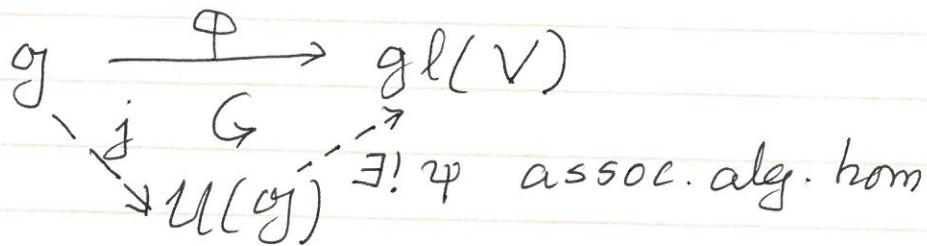 𝔤 φ gl(V)
j ↺
U(𝔤) ∃! ψ assoc. alg. hom